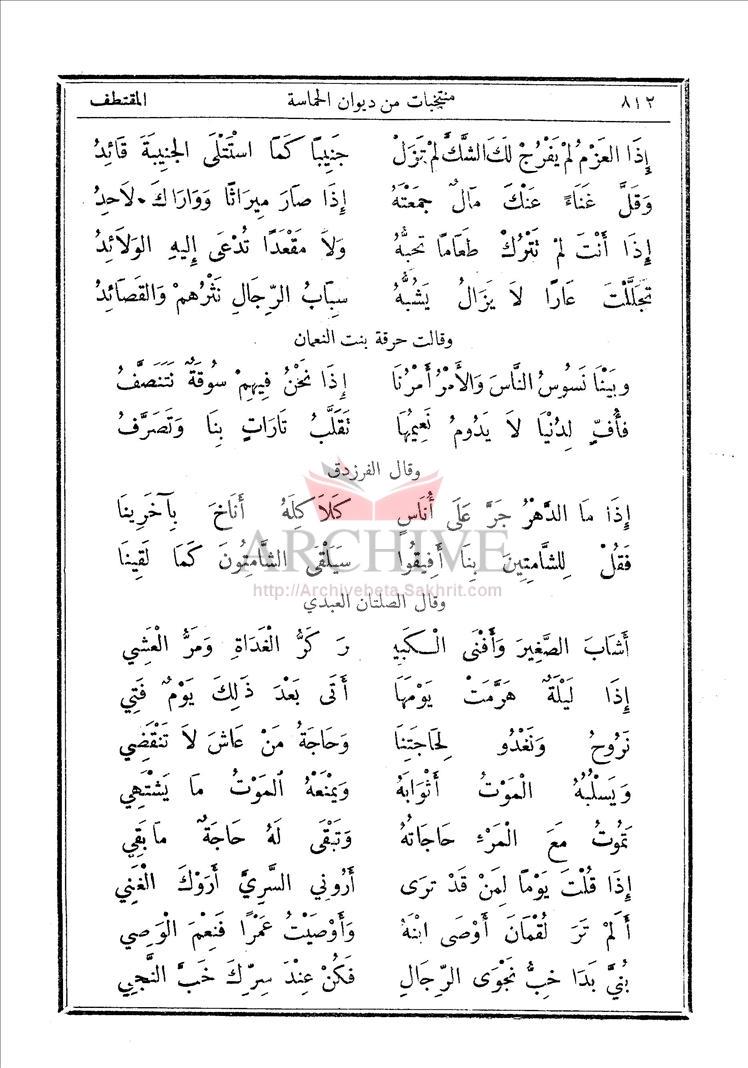 ٨١٢ منتخبات من ديوان الحماسة المقتطف
إِذَا العَزْمُ لَمْ يَفْرُجْ لَكَ الشَّكَّ لَمْ تَزَلْ جَنِيبًا كَمَا اسْتَتْلَى الجَنِيبَةَ قَائِدُ
وَقَلَّ غَنَاءً عَنْكَ مَالٌ جَمَعْتَهُ إِذَا صَارَ مِيرَاثًا وَوَارَاكَ لاَحِدُ
إِذَا أَنْتَ لَمْ تَتْرُكْ طَعَامًا تُحِبُّهُ وَلاَ مَقْعَدًا تُدْعَى إِلَيهِ الوَلاَئِدُ
تَجَلَّلْتَ عَارًا لاَ يَزَالُ يَشُبُّهُ سِبَابُ الرِّجَالِ نَثْرُهُمْ وَالقَصَائِدُ
وقالت حرقة بنت النعمان
وبَيْنَا نَسُوسُ النَّاسَ وَالأَمْرُ أَمْرُنَا إِذَا نَحْنُ فِيهِمْ سُوقَةٌ نَتَنَصَّفُ
فَأُفٍّ لِدُنْيَا لاَ يَدُومُ نَعِيمُهَا تَقَلَّبُ تَارَاتٍ بِنَا وَتَصَرَّفُ
وقال الفرزدق
إِذَا مَا الدَّهْرُ جَرَّ عَلَى أُنَاسٍ كَلاَكِلَهُ أَنَاخَ بِآخَرِينَا
فَقُلْ لِلشَّامِتِينَ بِنَا أَفِيقُوا سَيَلْقَى الشَّامِتُونَ كَمَا لَقِينَا
ARCHIVE
http://Archivebeta.Sakhrit.com
وقال الصلتان العبدي
أَشَابَ الصَّغِيرَ وَأَفْنَى الْكَبِيـ ـرَ كَرُّ الْغَدَاةِ وَمَرُّ الْعَشِي
إِذَا لَيْلَةٌ هَرَّمَتْ يَوْمَهَا أَتَى بَعْدَ ذَلِكَ يَوْمٌ فَتِي
نَرُوحُ وَنَغْدُو لِحَاجَتِنَا وَحَاجَةُ مَنْ عَاشَ لاَ تَنْقَضِي
وَيَسْلُبُهُ الْمَوْتُ أَثْوَابَهُ وَيَمْنَعُهُ الْمَوْتُ مَا يَشْتَهِي
تَمُوتُ مَعَ الْمَرْءِ حَاجَاتُهُ وَتَبْقَى لَهُ حَاجَةٌ مَا بَقِي
إِذَا قُلْتَ يَوْمًا لِمَنْ قَدْ تَرَى أَرُونِي السَّرِيَّ أَرَوْكَ الْغَنِي
أَلَمْ تَرَ لُقْمَانَ أَوْصَى ابْنَهُ وَأَوْصَيْتُ عَمْرًا فَنِعْمَ الْوَصِي
بُنَيَّ بَدَا خِبُّ نَجْوَى الرِّجَالِ فَكُنْ عِنْدَ سِرِّكَ خَبَّ النَّجِي